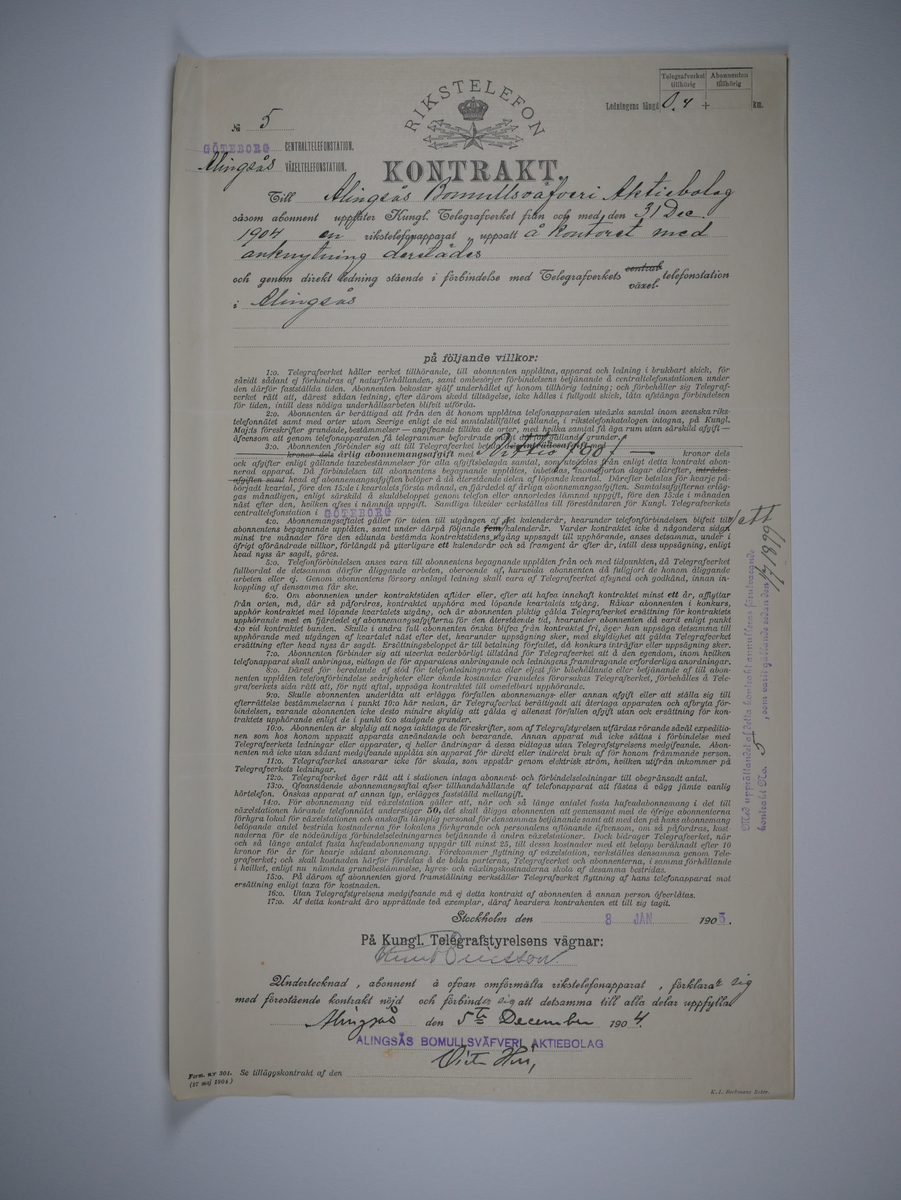 Telegrafverket tillhörig
Abonnenten tillhörig
Ledningens längd 0,4 + km.
RIKSTELEFON
№ 5
GÖTEBORG CENTRALTELEFONSTATION.
Alingsås VÄXELTELEFONSTATION.
KONTRAKT.
Till Alingsås Bomullsväfveri Aktiebolag
såsom abonnent upplåter Kungl. Telegrafverket från och med den 31 Dec
1904 en rikstelefonapparat, uppsatt å kontoret med
anknytning derstädes
och genom direkt ledning stående i förbindelse med Telegrafverkets central växel- telefonstation
i Alingsås
på följande villkor:
1:o. Telegrafverket håller verket tillhörande, till abonnenten upplåtna, apparat och ledning i brukbart skick, för
såvidt sådant ej förhindras af naturförhållanden, samt ombesörjer förbindelsens betjänande å centraltelefonstationen under
den därför fastställda tiden. Abonnenten bekostar själf underhållet af honom tillhörig ledning; och förbehåller sig Telegraf-
verket rätt att, därest sådan ledning, efter därom skedd tillsägelse, icke hålles i fullgodt skick, låta afstänga förbindelsen
för tiden, intill dess nödiga underhållsarbeten blifvit utförda.
2:o. Abonnenten är berättigad att från den åt honom upplåtna telefonapparaten utväxla samtal inom svenska riks-
telefonnätet samt med orter utom Sverige enligt de vid samtalstillfället gällande, i rikstelefonkatalogen intagna, på Kungl.
Maj:ts föreskrifter grundade, bestämmelser — angifvande tillika de orter, med hvilka samtal få äga rum utan särskild afgift —
äfvensom att genom telefonapparaten få telegrammer befordrade enligt därför gällande grunder.
3:o. Abonnenten förbinder sig att till Telegrafverket betala dels inträdesafgift med
kronor dels årlig abonnemangsafgift med Åttio /80/ — kronor dels
ock afgifter enligt gällande taxebestämmelser för alla afgiftsbelagda samtal, som utväxlas från enligt detta kontrakt abon-
nerad apparat. Då förbindelsen till abonnentens begagnande upplåtes, inbetalas, inom fjorton dagar därefter, inträdes-
afgiften samt head af abonnemangsafgiften belöper å då återstående delen af löpande kvartal. Därefter betalas för kvarje på-
börjadt kvartal, före den 15:de i kvartalets första månad, en fjärdedel af årliga abonnemangsafgiften. Samtalsafgifterna erläg-
gas månatligen, enligt särskild å skuldbeloppet genom telefon eller annorledes lämnad uppgift, före den 15:de i månaden
näst efter den, hvilken afses i nämnda uppgift. Samtliga likvider verkställas till föreståndaren för Kungl. Telegrafverkets
centraltelefonstation i GÖTEBORG
4:o. Abonnemangsaftalet gäller för tiden till utgången af det kalenderår, hvarunder telefonförbindelsen blifvit till
abonnentens begagnande upplåten, samt under därpå följande fem kalenderår. Varder kontraktet icke å någondera sidan
minst tre månader före den sålunda bestämda kontraktstidens utgång uppsagdt till upphörande, anses detsamma, under i
öfrigt oförändrade villkor, förlängdt på ytterligare ett kalenderår och så framgent år efter år, intill dess uppsägning, enligt
hvad nyss är sagdt, göres.
5:o. Telefonförbindelsen anses vara till abonnentens begagnande upplåten från och med tidpunkten, då Telegrafverket
fullbordat de detsamma därför åliggande arbeten, oberoende af, huruvida abonnenten då fullgjort de honom åliggande
arbeten eller ej. Genom abonnentens försorg anlagd ledning skall vara af Telegrafverket afsynad och godkänd, innan in-
koppling af densamma får ske.
6:o. Om abonnenten under kontraktstiden aflider eller, efter att hafva innehaft kontraktet minst ett år, afflyttar
från orten, må, där så påfordras, kontraktet upphöra med löpande kvartalets utgång. Råkar abonnenten i konkurs,
upphör kontraktet med löpande kvartalets utgång, och är abonnenten pliktig gälda Telegrafverket ersättning för kontraktets
upphörande med en fjärdedel af abonnemangsafgifterna för den återstående tid, hvarunder abonnenten då varit enligt punkt
4:o vid kontraktet bunden. Skulle i andra fall abonnenten önska blifva från kontraktet fri, äger han uppsäga detsamma till
upphörande med utgången af kvartalet näst efter det, hvarunder uppsägning sker, med skyldighet att gälda Telegrafverket
ersättning efter hvad nyss är sagdt. Ersättningsbeloppet är till betalning förfallet, då konkurs inträffar eller uppsägning sker.
7:o. Abonnenten förbinder sig att utverka vederbörligt tillstånd för Telegrafverket att å den egendom, inom hvilken
telefonapparat skall anbringas, vidtaga de för apparatens anbringande och ledningens framdragande erforderliga anordningar.
8:o. Därest för beredande af stöd för telefonledningarna eller eljest för bibehållande eller betjänande af till abon-
nenten upplåten telefonförbindelse svårigheter eller ökade kostnader framdeles förorsakas Telegrafverket, förbehålles å Tele-
grafverkets sida rätt att, för nytt aftal, uppsäga kontraktet till omedelbart upphörande.
9:o. Skulle abonnenten underlåta att erlägga förfallen abonnemangs- eller annan afgift eller att ställa sig till
efterrättelse bestämmelserna i punkt 10:o här nedan, är Telegrafverket berättigadt att återtaga apparaten och afbryta för-
bindelsen, varande abonnenten icke desto mindre skyldig att gälda ej allenast förfallen afgift utan och ersättning för kon-
traktets upphörande enligt de i punkt 6:o stadgade grunder.
10:o. Abonnenten är skyldig att noga iakttaga de föreskrifter, som af Telegrafstyrelsen utfärdas rörande såväl expeditio-
nen som hos honom uppsatt apparats användande och bevarande. Annan apparat må icke sättas i förbindelse med
Telegrafverkets ledningar eller apparater, ej heller ändringar å dessa vidtagas utan Telegrafstyrelsens medgifvande. Abon-
nenten må icke utan sådant medgifvande upplåta sin apparat för direkt eller indirekt bruk af för honom främmande person.
11:o. Telegrafverket ansvarar icke för skada, som uppstår genom elektrisk ström, hvilken utifrån inkommer på
Telegrafverkets ledningar.
12:o. Telegrafverket äger rätt att i stationen intaga abonnent- och förbindelseledningar till obegränsadt antal.
13:o. Ofvanstående abonnemangsaftal afser tillhandahållande af telefonapparat att fästas å vägg jämte vanlig
hörtelefon. Önskas apparat af annan typ, erlägges fastställd mellanafgift.
14:o. För abonnemang vid växelstation gäller att, när och så länge antalet fasta hufvudabonnemang i det till
växelstationen hörande telefonnätet understiger 50, det skall åligga abonnenten att gemensamt med de öfrige abonnenterna
förhyra lokal för växelstationen och anskaffa lämplig personal för densammas betjänande samt att med den på hans abonnemang
belöpande andel bestrida kostnaderna för lokalens förhyrande och personalens aflönande äfvensom, om så påfordras, kost-
naderna för de nödvändiga förbindelseledningarnes betjänande å andra växelstationer. Dock bidrager Telegrafverket, när
och så länge antalet fasta hufvudabonnemang uppgår till minst 25, till dessa kostnader med ett belopp beräknadt efter 10
kronor för år för hvarje sådant abonnemang. Förekommer flyttning af växelstation, verkställes densamma genom Tele-
grafverket; och skall kostnaden härför fördelas å de båda parterna, Telegrafverket och abonnenterna, i samma förhållande
i hvilket, enligt nu nämnda grundbestämmelse, hyres- och växlingskostnaderna skola af desamma bestridas.
15:o. På därom af abonnenten gjord framställning verkställer Telegrafverket flyttning af hans telefonapparat mot
ersättning enligt taxa för kostnaden.
16:o. Utan Telegrafstyrelsens medgifvande må ej detta kontrakt af abonnenten å annan person öfverlåtas.
17:o. Af detta kontrakt äro upprättade två exemplar, däraf hvardera kontrahenten ett till sig tagit.
Stockholm den 8 JAN. 1905.
På Kungl. Telegrafstyrelsens vägnar:
Undertecknad, abonnent å ofvan omförmälta rikstelefonapparat, förklarar sig
med förestående kontrakt nöjd och förbinder sig att detsamma till alla delar uppfylla
Alingsås den 5te December 1904.
ALINGSÅS BOMULLSVÄFVERI AKTIEBOLAG
Form. n:r 301. Se tilläggskontrakt af den
(17 maj 1904)
K. L. Beckmans Boktr.
Med upprättandet af detta kontrakt annulleras förutvarande
kontrakt No. 5, som varit gällande sedan den